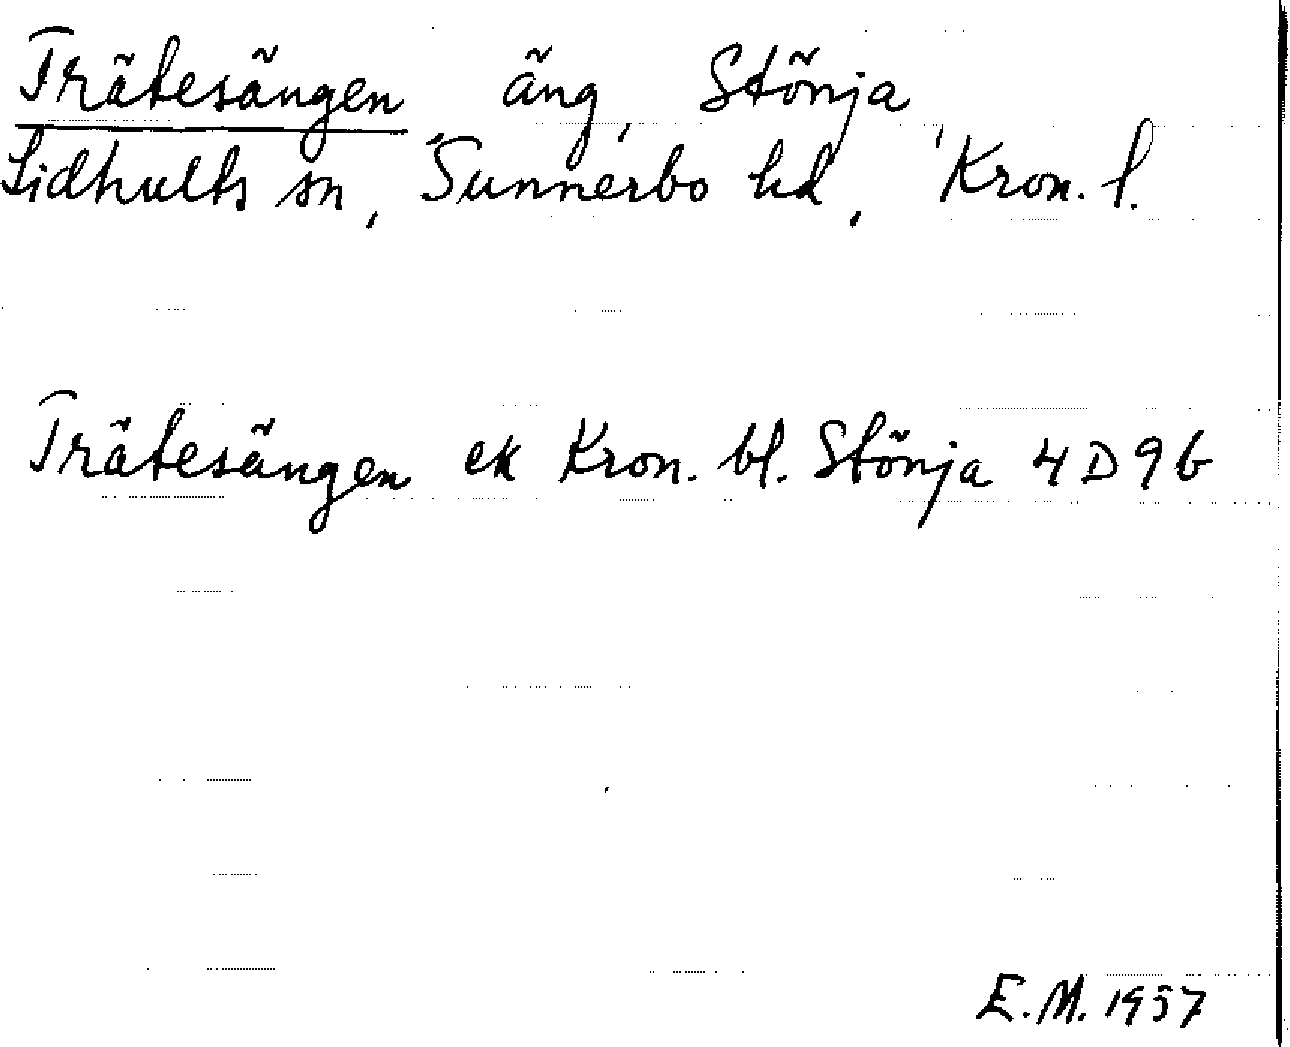 Trätesängen äng, Stönja,
Lidhults sn, Sunnerbo hd, Kron. l.
Trätesängen ek Kron. bl. Stönja 4 D 9 b
E.M. 1957